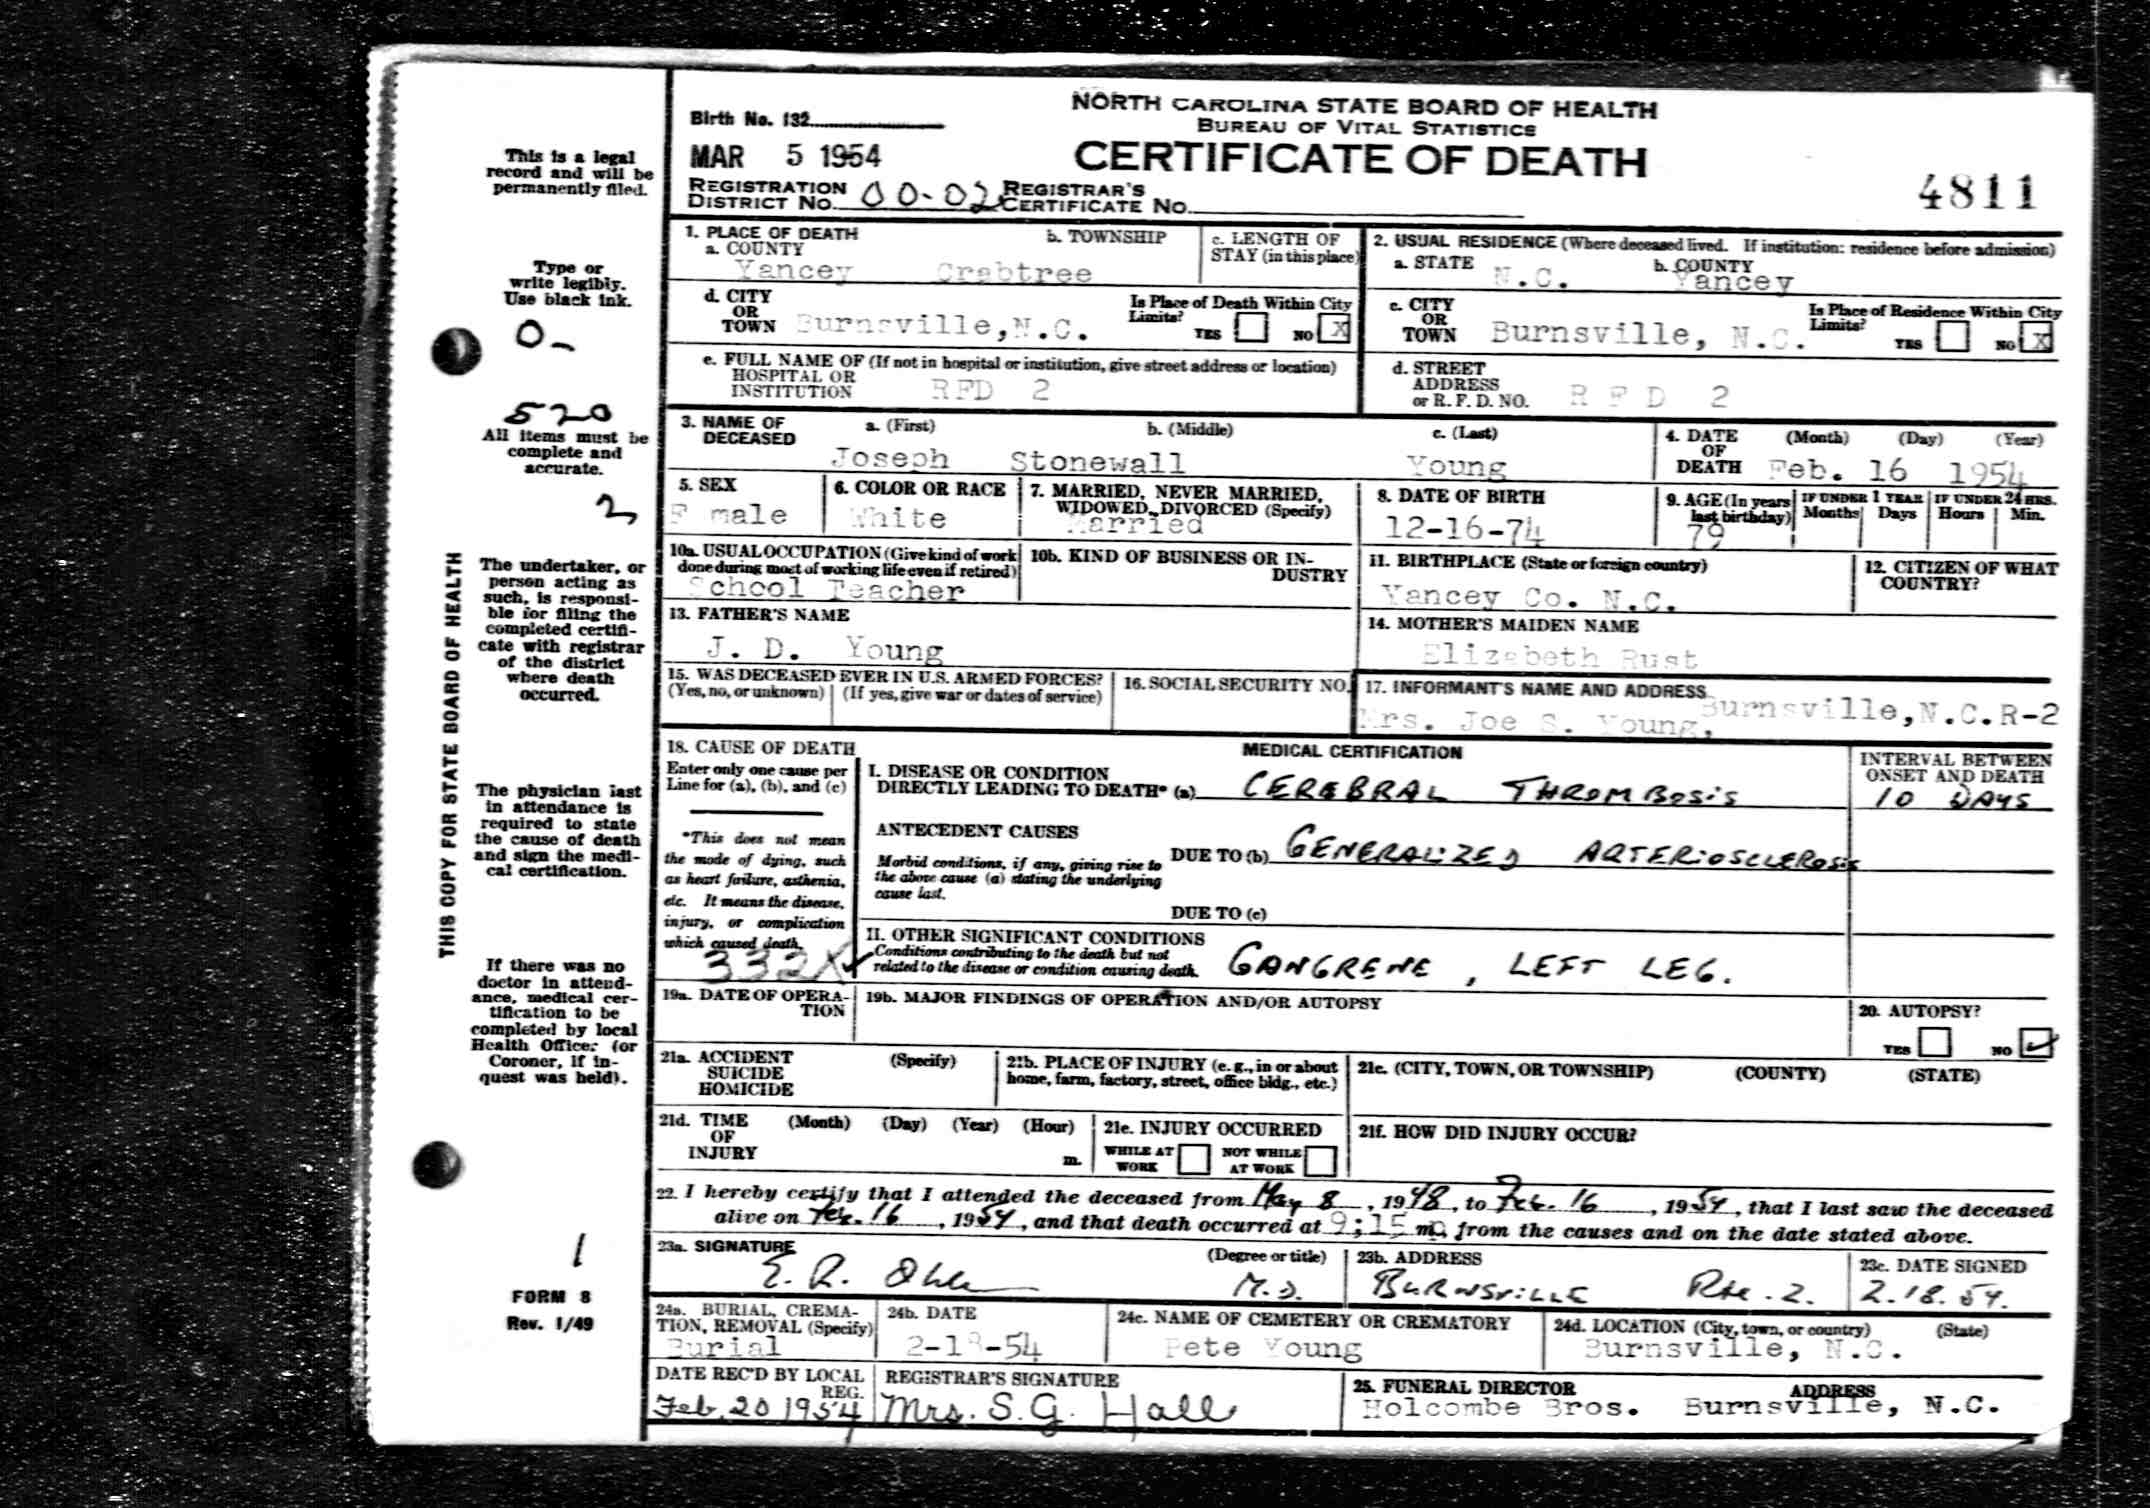 NORTH CAROLINA STATE BOARD OF HEALTH
BUREAU OF VITAL STATISTICS
CERTIFICATE OF DEATH
Birth No. 132
MAR 5 1954
4811
REGISTRATION DISTRICT No. 00-02 REGISTRAR'S CERTIFICATE No.
This is a legal
record and will be
permanently filed.
Type or
write legibly.
Use black ink.
0-
520
All items must be
complete and
accurate.
2
The undertaker, or
person acting as
such, is responsi-
ble for filing the
completed certifi-
cate with registrar
of the district
where death
occurred.
THIS COPY FOR STATE BOARD OF HEALTH
The physician last
in attendance is
required to state
the cause of death
and sign the medi-
cal certification.
If there was no
doctor in attend-
ance, medical cer-
tification to be
completed by local
Health Officer (or
Coroner, if in-
quest was held).
1
FORM 8
Rev. 1/49
1. PLACE OF DEATH
a. COUNTY Yancey
b. TOWNSHIP Crabtree
c. LENGTH OF STAY (in this place)
2. USUAL RESIDENCE (Where deceased lived. If institution: residence before admission)
a. STATE N.C.
b. COUNTY Yancey
d. CITY OR TOWN Burnsville, N.C.
Is Place of Death Within City Limits? YES NO X
c. CITY OR TOWN Burnsville, N.C.
Is Place of Residence Within City Limits? YES NO X
e. FULL NAME OF (If not in hospital or institution, give street address or location)
HOSPITAL OR INSTITUTION RFD 2
d. STREET ADDRESS or R. F. D. NO. R F D 2
3. NAME OF DECEASED
a. (First) Joseph
b. (Middle) Stonewall
c. (Last) Young
4. DATE OF DEATH (Month) (Day) (Year) Feb. 16 1954
5. SEX male
6. COLOR OR RACE White
7. MARRIED, NEVER MARRIED, WIDOWED, DIVORCED (Specify) Married
8. DATE OF BIRTH 12-16-74
9. AGE (In years last birthday) 79
IF UNDER 1 YEAR Months Days
IF UNDER 24 HRS. Hours Min.
10a. USUAL OCCUPATION (Give kind of work done during most of working life even if retired) School Teacher
10b. KIND OF BUSINESS OR INDUSTRY
11. BIRTHPLACE (State or foreign country) Yancey Co. N.C.
12. CITIZEN OF WHAT COUNTRY?
13. FATHER'S NAME
J. D. Young
14. MOTHER'S MAIDEN NAME
Elizabeth Rust
15. WAS DECEASED EVER IN U.S. ARMED FORCES?
(Yes, no, or unknown) (If yes, give war or dates of service)
16. SOCIAL SECURITY NO.
17. INFORMANT'S NAME AND ADDRESS
Mrs. Joe S. Young, Burnsville, N.C. R-2
18. CAUSE OF DEATH
Enter only one cause per
Line for (a), (b), and (c)
*This does not mean
the mode of dying, such
as heart failure, asthenia,
etc. It means the disease,
injury, or complication
which caused death.
332X
MEDICAL CERTIFICATION
INTERVAL BETWEEN ONSET AND DEATH
I. DISEASE OR CONDITION
DIRECTLY LEADING TO DEATH* (a) CEREBRAL THROMBOSIS 10 DAYS
ANTECEDENT CAUSES
Morbid conditions, if any, giving rise to
the above cause (a) stating the underlying
cause last.
DUE TO (b) GENERALIZED ARTERIOSCLEROSIS
DUE TO (c)
II. OTHER SIGNIFICANT CONDITIONS
Conditions contributing to the death but not
related to the disease or condition causing death.
GANGRENE, LEFT LEG.
19a. DATE OF OPERATION
19b. MAJOR FINDINGS OF OPERATION AND/OR AUTOPSY
20. AUTOPSY?
YES NO ✓
21a. ACCIDENT SUICIDE HOMICIDE (Specify)
21b. PLACE OF INJURY (e. g., in or about home, farm, factory, street, office bldg., etc.)
21c. (CITY, TOWN, OR TOWNSHIP) (COUNTY) (STATE)
21d. TIME OF INJURY (Month) (Day) (Year) (Hour) m.
21e. INJURY OCCURRED
WHILE AT WORK NOT WHILE AT WORK
21f. HOW DID INJURY OCCUR?
22. I hereby certify that I attended the deceased from May 8, 1948, to Feb. 16, 1954, that I last saw the deceased
alive on Feb. 16, 1954, and that death occurred at 9:15 m, from the causes and on the date stated above.
23a. SIGNATURE (Degree or title)
E. R. M.D.
23b. ADDRESS
BURNSVILLE Rte. 2.
23c. DATE SIGNED
2.18.54.
24a. BURIAL, CREMATION, REMOVAL (Specify)
Burial
24b. DATE
2-18-54
24c. NAME OF CEMETERY OR CREMATORY
Pete Young
24d. LOCATION (City, town, or country) (State)
Burnsville, N.C.
DATE REC'D BY LOCAL REG.
Feb. 20 1954
REGISTRAR'S SIGNATURE
Mrs. S. G. Hall
25. FUNERAL DIRECTOR ADDRESS
Holcombe Bros. Burnsville, N.C.